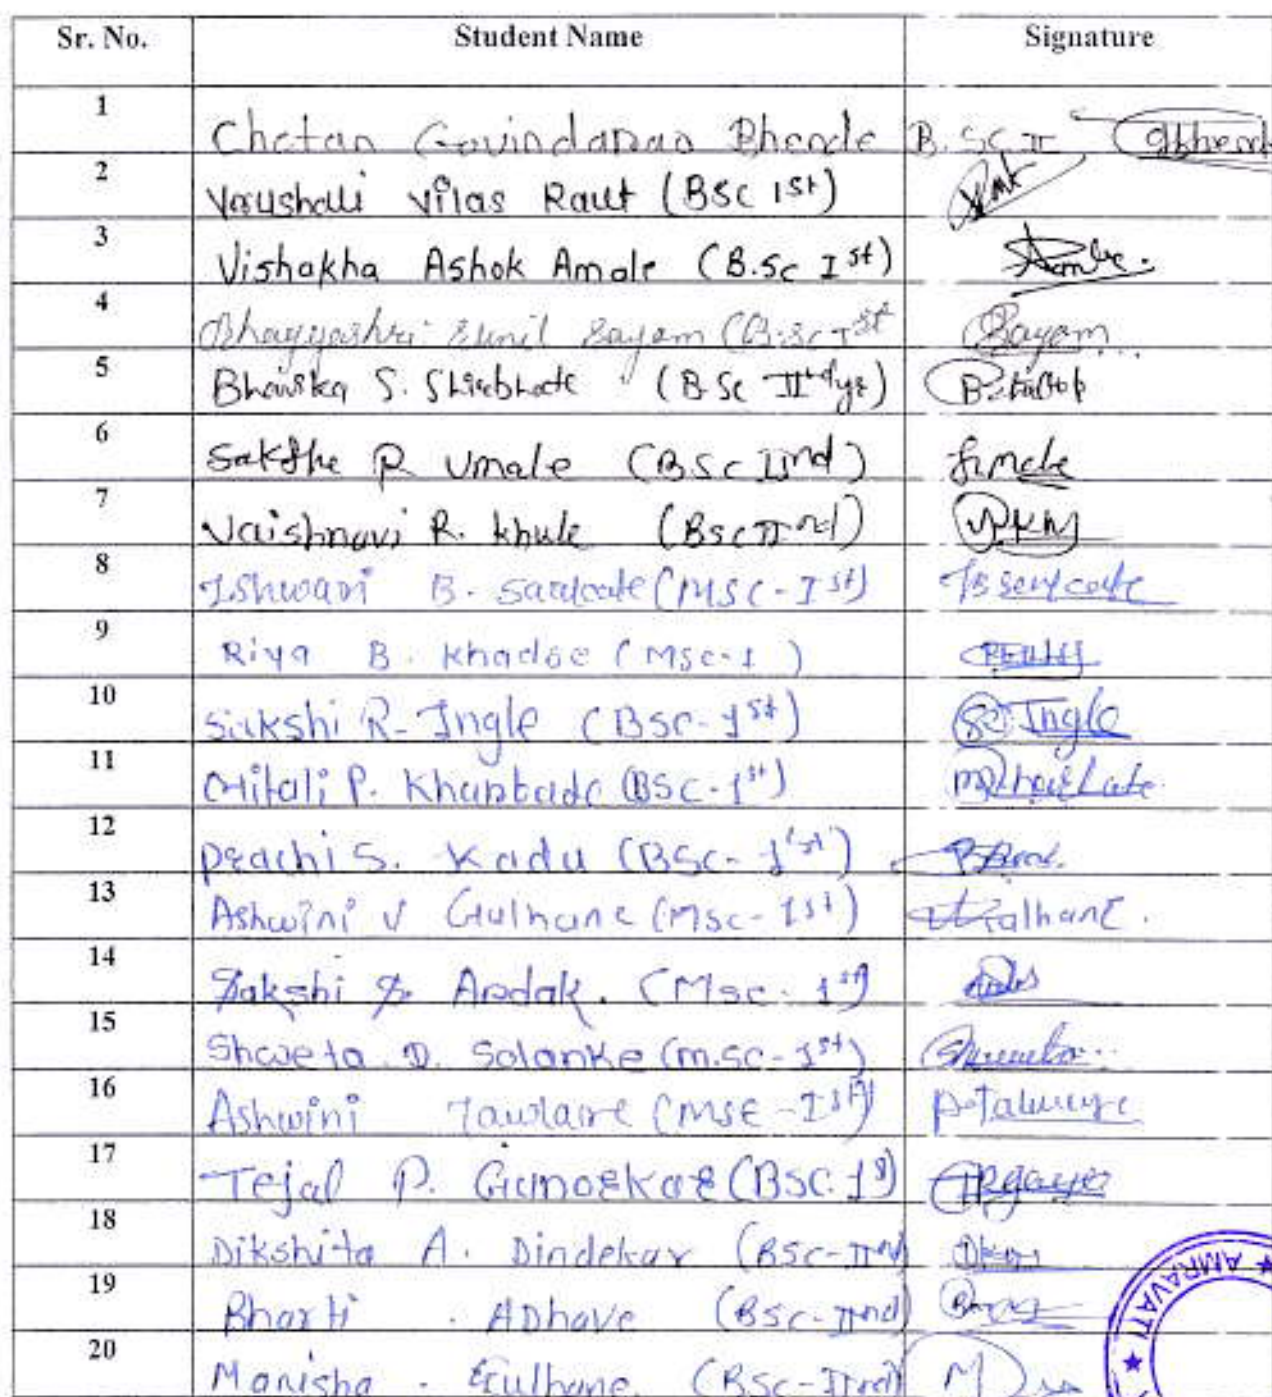 Sr. No. Student Name Signature
1 Chetan Govindarao Bhende B.SC II
2 Vaushali Vilas Raut (BSC 1st)
3 Vishakha Ashok Amale (B.Sc Ist)
4 Bhagyashri Sunil Sayam (B.Sc Ist Sayam
5 Bhavika S. Shirbhate (B.Sc IInd yr)
6 Sakshe P. Umale (BSc IInd) Sumale
7 Vaishnavi R. khule (Bsc IInd)
8 Ishwari B. Sardcate (MSC-Ist)
9 Riya B. Khadse (Msc-I)
10 Sakshi R. Ingle (BSC-1st) Ingle
11 Mitali P. Kharbade (BSC-1st)
12 Prachi S. Kadu (BSC-1st)
13 Ashwini V Gulhane (Msc-1st) Gulhane.
14 Sakshi S. Andak. (Msc-1st)
15 Shweta D. Solanke (M.SC-1st)
16 Ashwini (MSC-Ist)
17 Tejal P. (BSC.1st)
18 Dikshita A. Dindekar (BSC-IInd)
19 Bharti . ADhave (BSC-IInd)
20 Manisha . Gulhane. (BSC-IInd) M
★ AMRAVATI ★